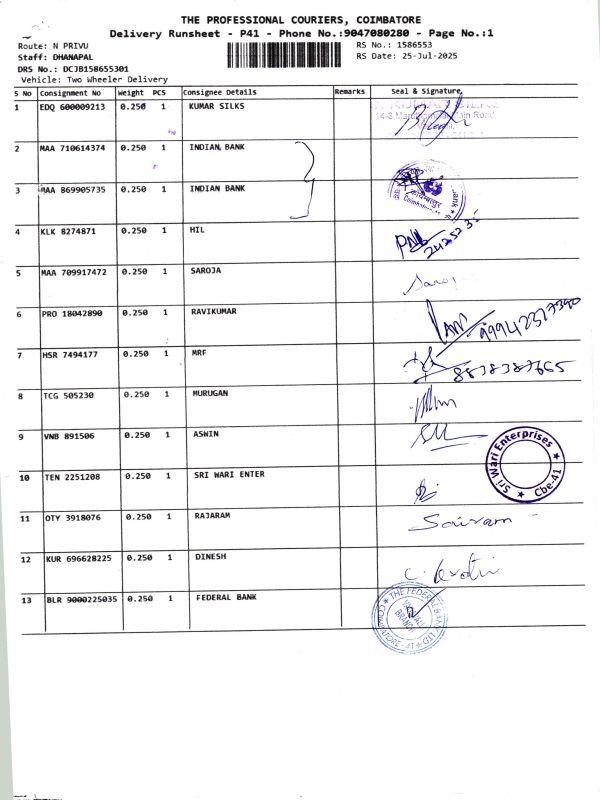 THE PROFESSIONAL COURIERS, COIMBATORE
Delivery Runsheet - P41 - Phone No.:9047080280 - Page No.:1
Route: N PRIVU
RS No.: 1586553
Staff: DHANAPAL
RS Date: 25-Jul-2025
DRS No.: DCJB158655301
Vehicle: Two Wheeler Delivery
S No Consignment No Weight PCS Consignee Details Remarks Seal & Signature
1 EDQ 600009213 0.250 1 KUMAR SILKS
Main Road
2 MAA 710614374 0.250 1 INDIAN BANK
3 MAA 869905735 0.250 1 INDIAN BANK
4 KLK 8274871 0.250 1 HIL
5 MAA 709917472 0.250 1 SAROJA
Saroj
6 PRO 18042890 0.250 1 RAVIKUMAR
7 HSR 7494177 0.250 1 MRF
8838387665
8 TCG 505230 0.250 1 MURUGAN
9 VNB 891506 0.250 1 ASWIN
10 TEN 2251208 0.250 1 SRI WARI ENTER
Sri Wari Enterprises
Cbe-41
11 OTY 3918076 0.250 1 RAJARAM
Sairam
12 KUR 696628225 0.250 1 DINESH
13 BLR 9000225035 0.250 1 FEDERAL BANK
THE FEDERAL BANK LTD
COIMBATORE - 41
BRANCH